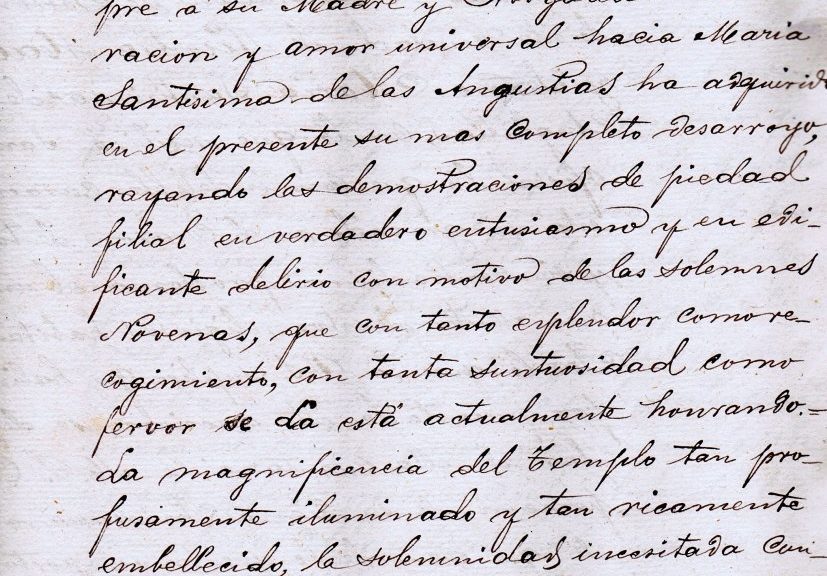 pre á su Madre y
racion y amor universal hacia Maria
Santisima de las Angustias ha adquirido
en el presente su mas completo desarroyo,
rayando las demostraciones de piedad
filial en verdadero entusiasmo y en edi-
ficante delirio con motivo de las solemnes
Novenas, que con tanto esplendor como re-
cogimiento, con tanta suntuosidad como
fervor se La está actualmente honrando.=
La magnificencia del Templo tan pro-
fusamente iluminado y tan ricamente
embellecido, la solemnidad inecsitada con-